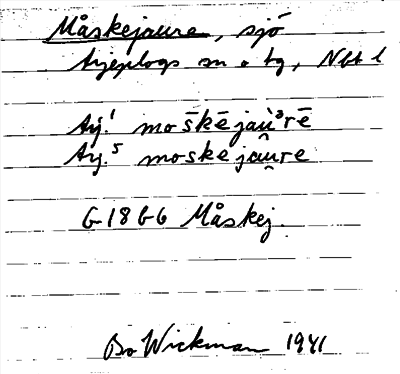 Måskejaure, sjö
Arjeplogs sn o tg, Nbt l
Arj.¹ mo škē jau̯ᵊrē
Arj.⁵ moskejau̯re
G 18 G 6 Måskej.
Bo Wickman 1941